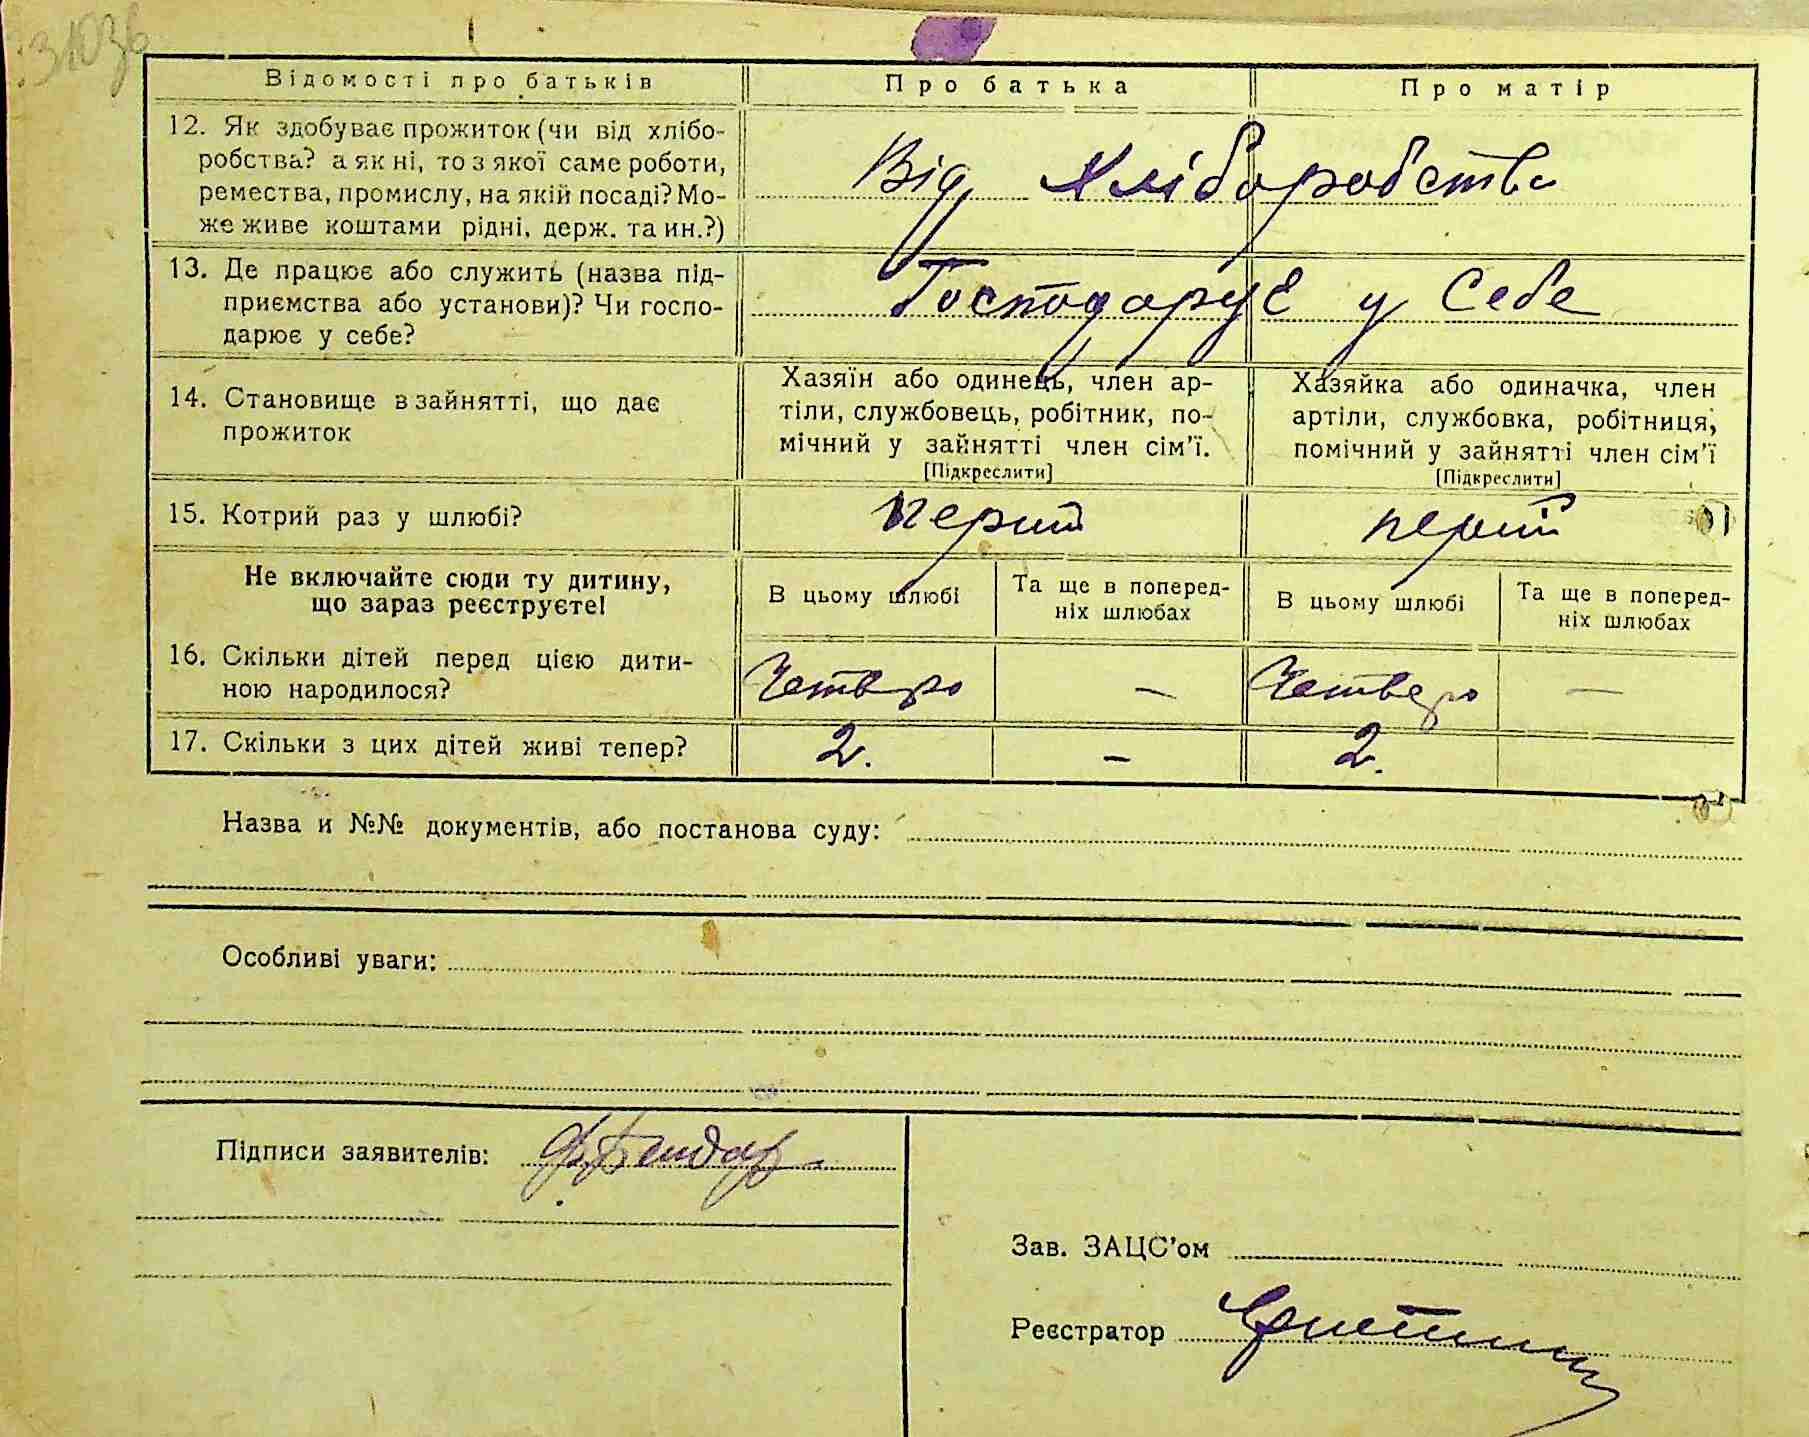 31036
Відомості про батьків Про батька Про матір
12. Як здобуває прожиток (чи від хлібо-
робства? а як ні, то з якої саме роботи,
ремества, промислу, на якій посаді? Мо-
же живе коштами рідні, держ. та ин.?)
Від хліборобства
13. Де працює або служить (назва під-
приємства або установи)? Чи госпо-
дарює у себе?
Господарує у себе
14. Становище в зайнятті, що дає
прожиток
Хазяїн або одинець, член ар-
тіли, службовець, робітник, по-
мічний у зайнятті член сім'ї.
[Підкреслити]
Хазяйка або одиначка, член
артіли, службовка, робітниця,
помічний у зайнятті член сім'ї
[Підкреслити]
15. Котрий раз у шлюбі? перший перший
Не включайте сюди ту дитину,
що зараз реєструєте!
В цьому шлюбі
Та ще в поперед-
ніх шлюбах
В цьому шлюбі
Та ще в поперед-
ніх шлюбах
16. Скільки дітей перед цією дити-
ною народилося?
Четверо — Четверо —
17. Скільки з цих дітей живі тепер? 2. — 2.
Назва и №№ документів, або постанова суду:
Особливі уваги:
Підписи заявителів:
Зав. ЗАЦС'ом
Реєстратор